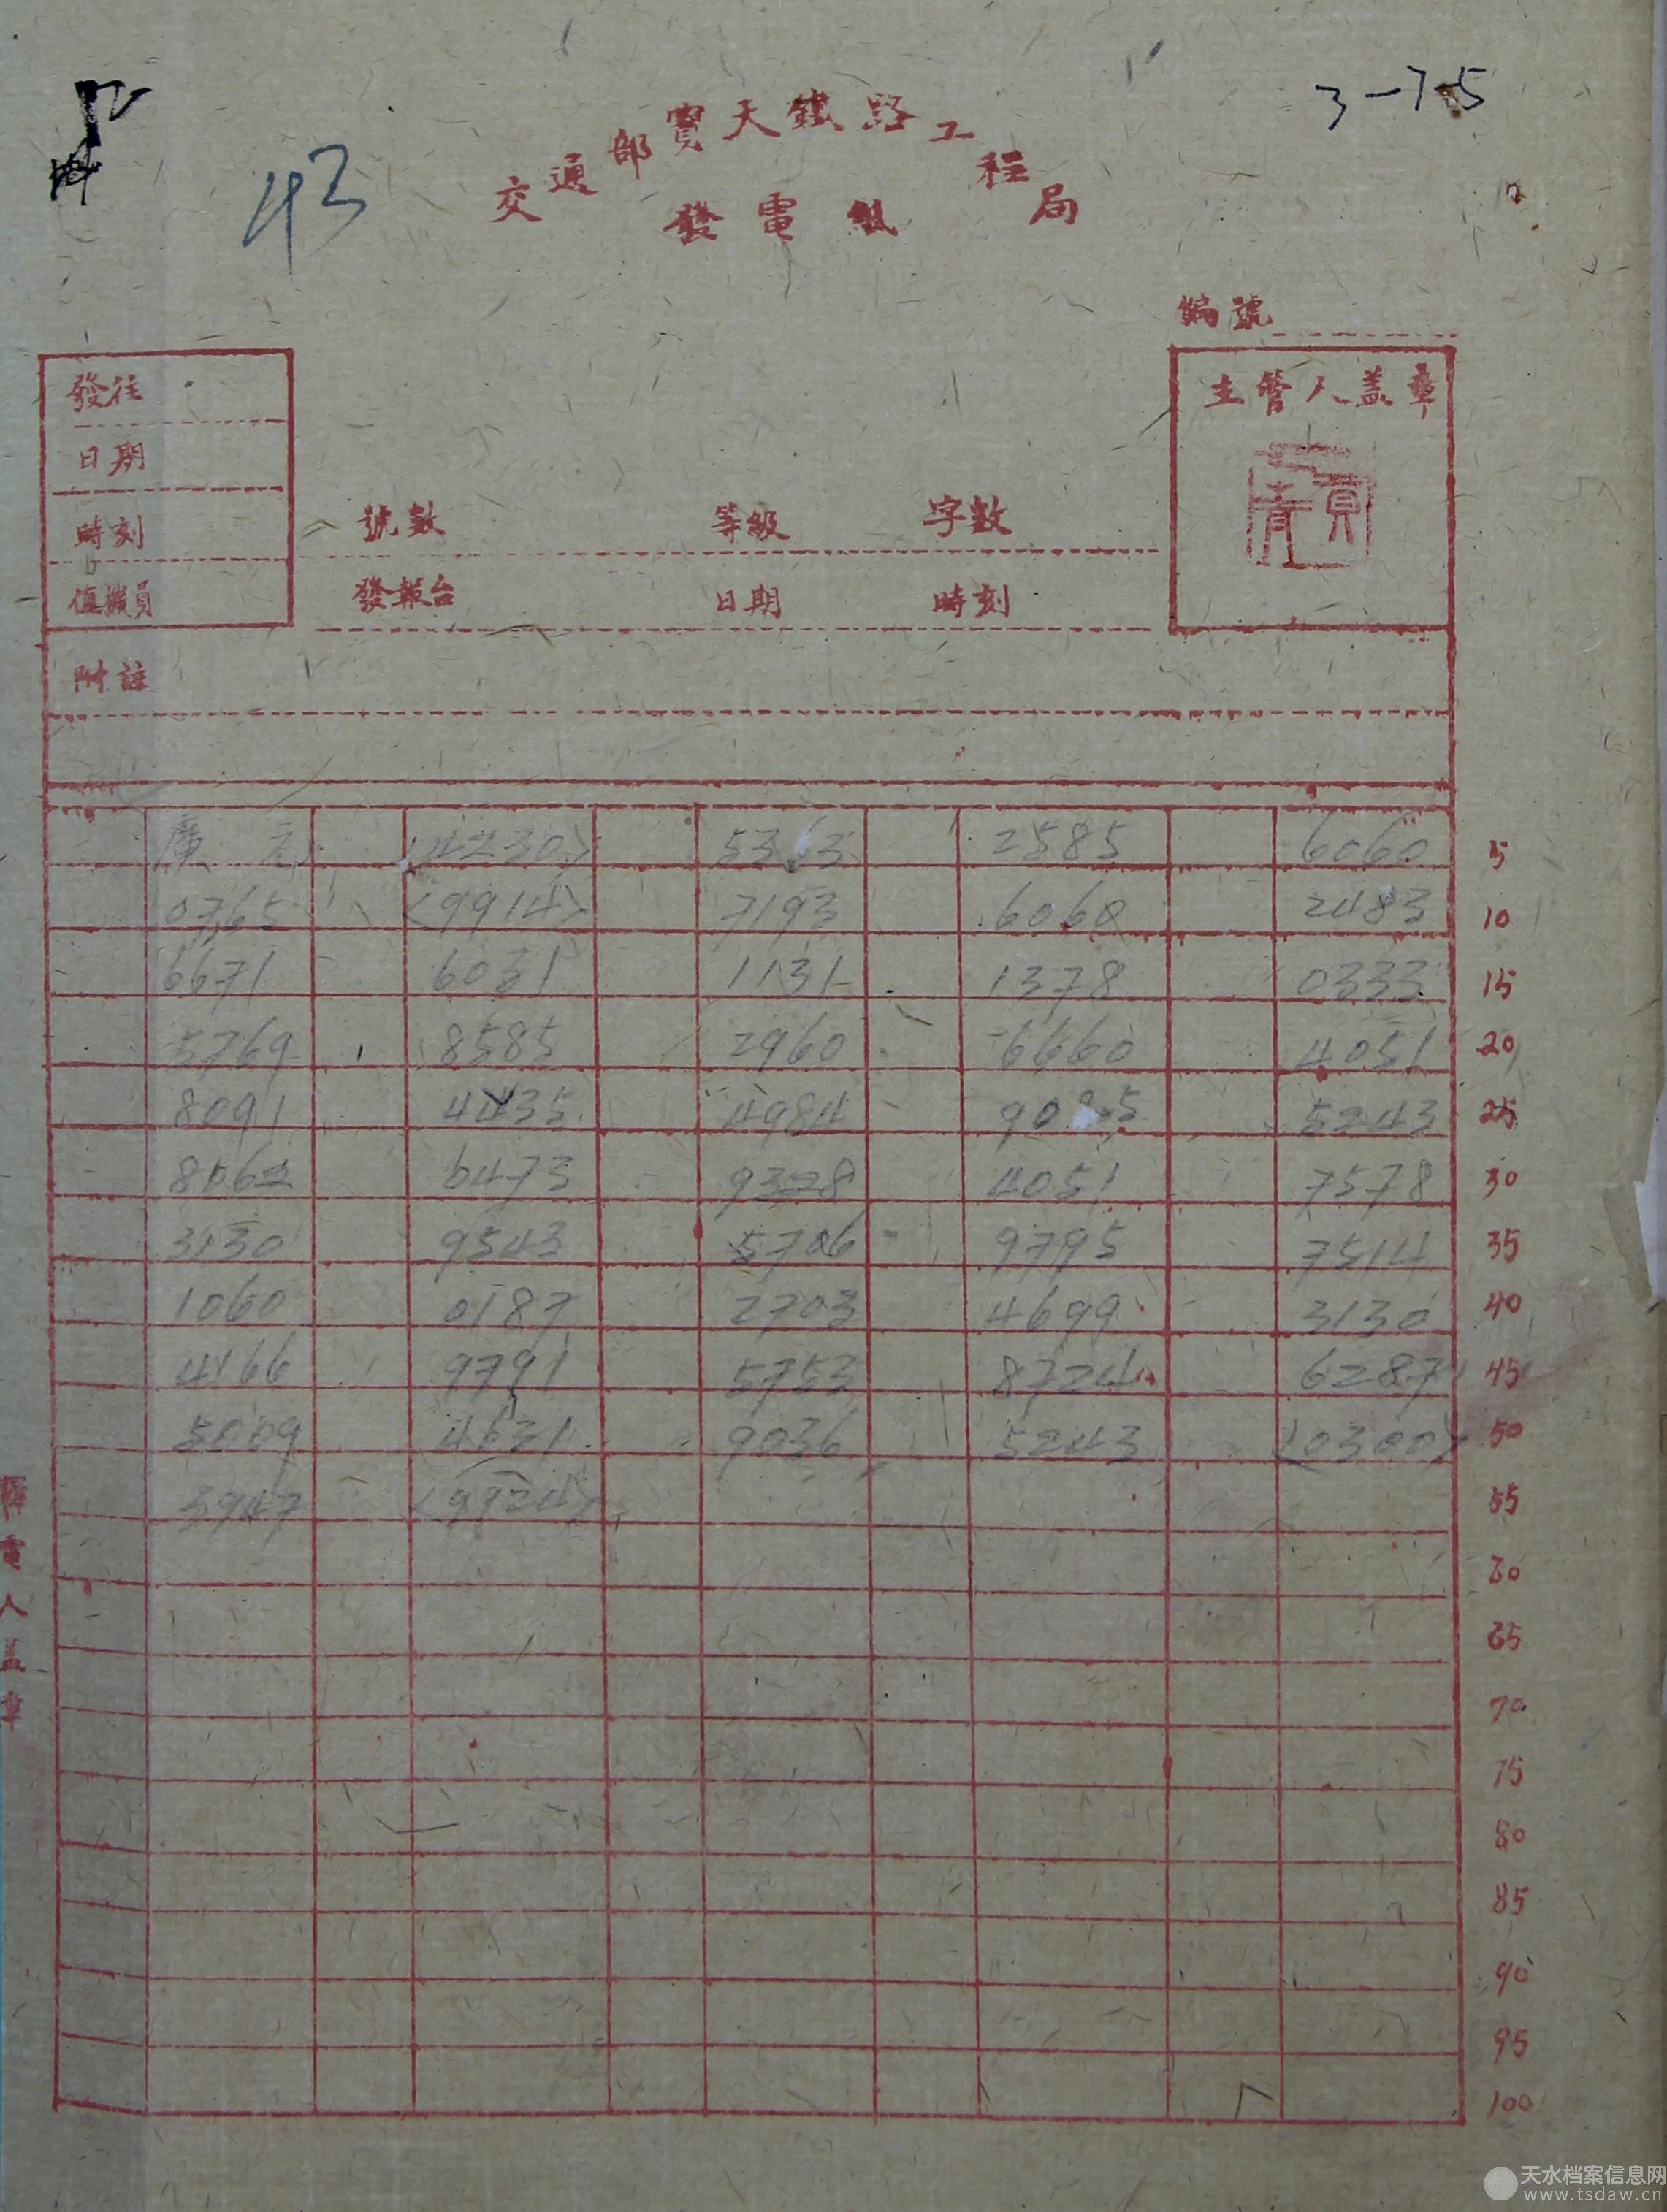 3-7-5
43
交通部寶天鐵路工程局
發電紙
編號
發往
日期
時刻
值機員
主管人蓋章
號數 等級 字數
發報台 日期 時刻
附註
廣元 <4230> 2585 6060 5
0765 <9914> 7193 6060 2483 10
6671 6031 1131 1378 0333 15
5769 8585 2960 6660 4051 20
8091 4435 4984 5243 25
8062 6473 9328 4051 7578 30
3130 9543 5706 9795 7514 35
1060 0187 2703 4699 3130 40
4166 9791 5753 8724 6287 45
5009 4631 9036 5243 <0300> 50
3947 <9924> 55
60
65
70
75
80
85
90
95
100
電人蓋章
天水档案信息网
www.tsdaw.cn